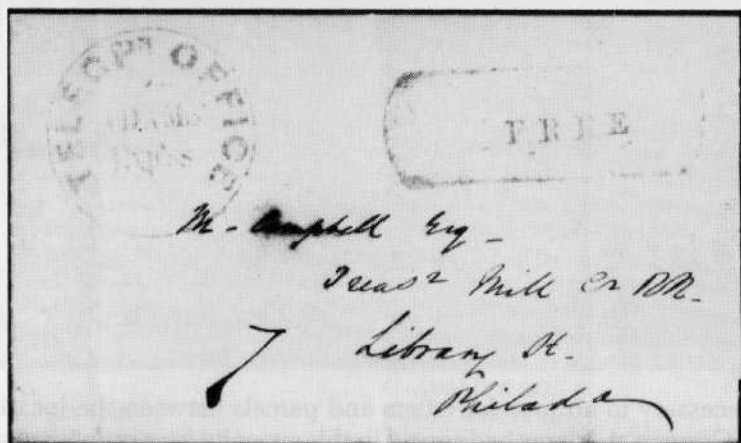 TELEGPH OFFICE
FREE
M. Campbell Esq
Treasr Mill Cr RR.
Library St.
Philada